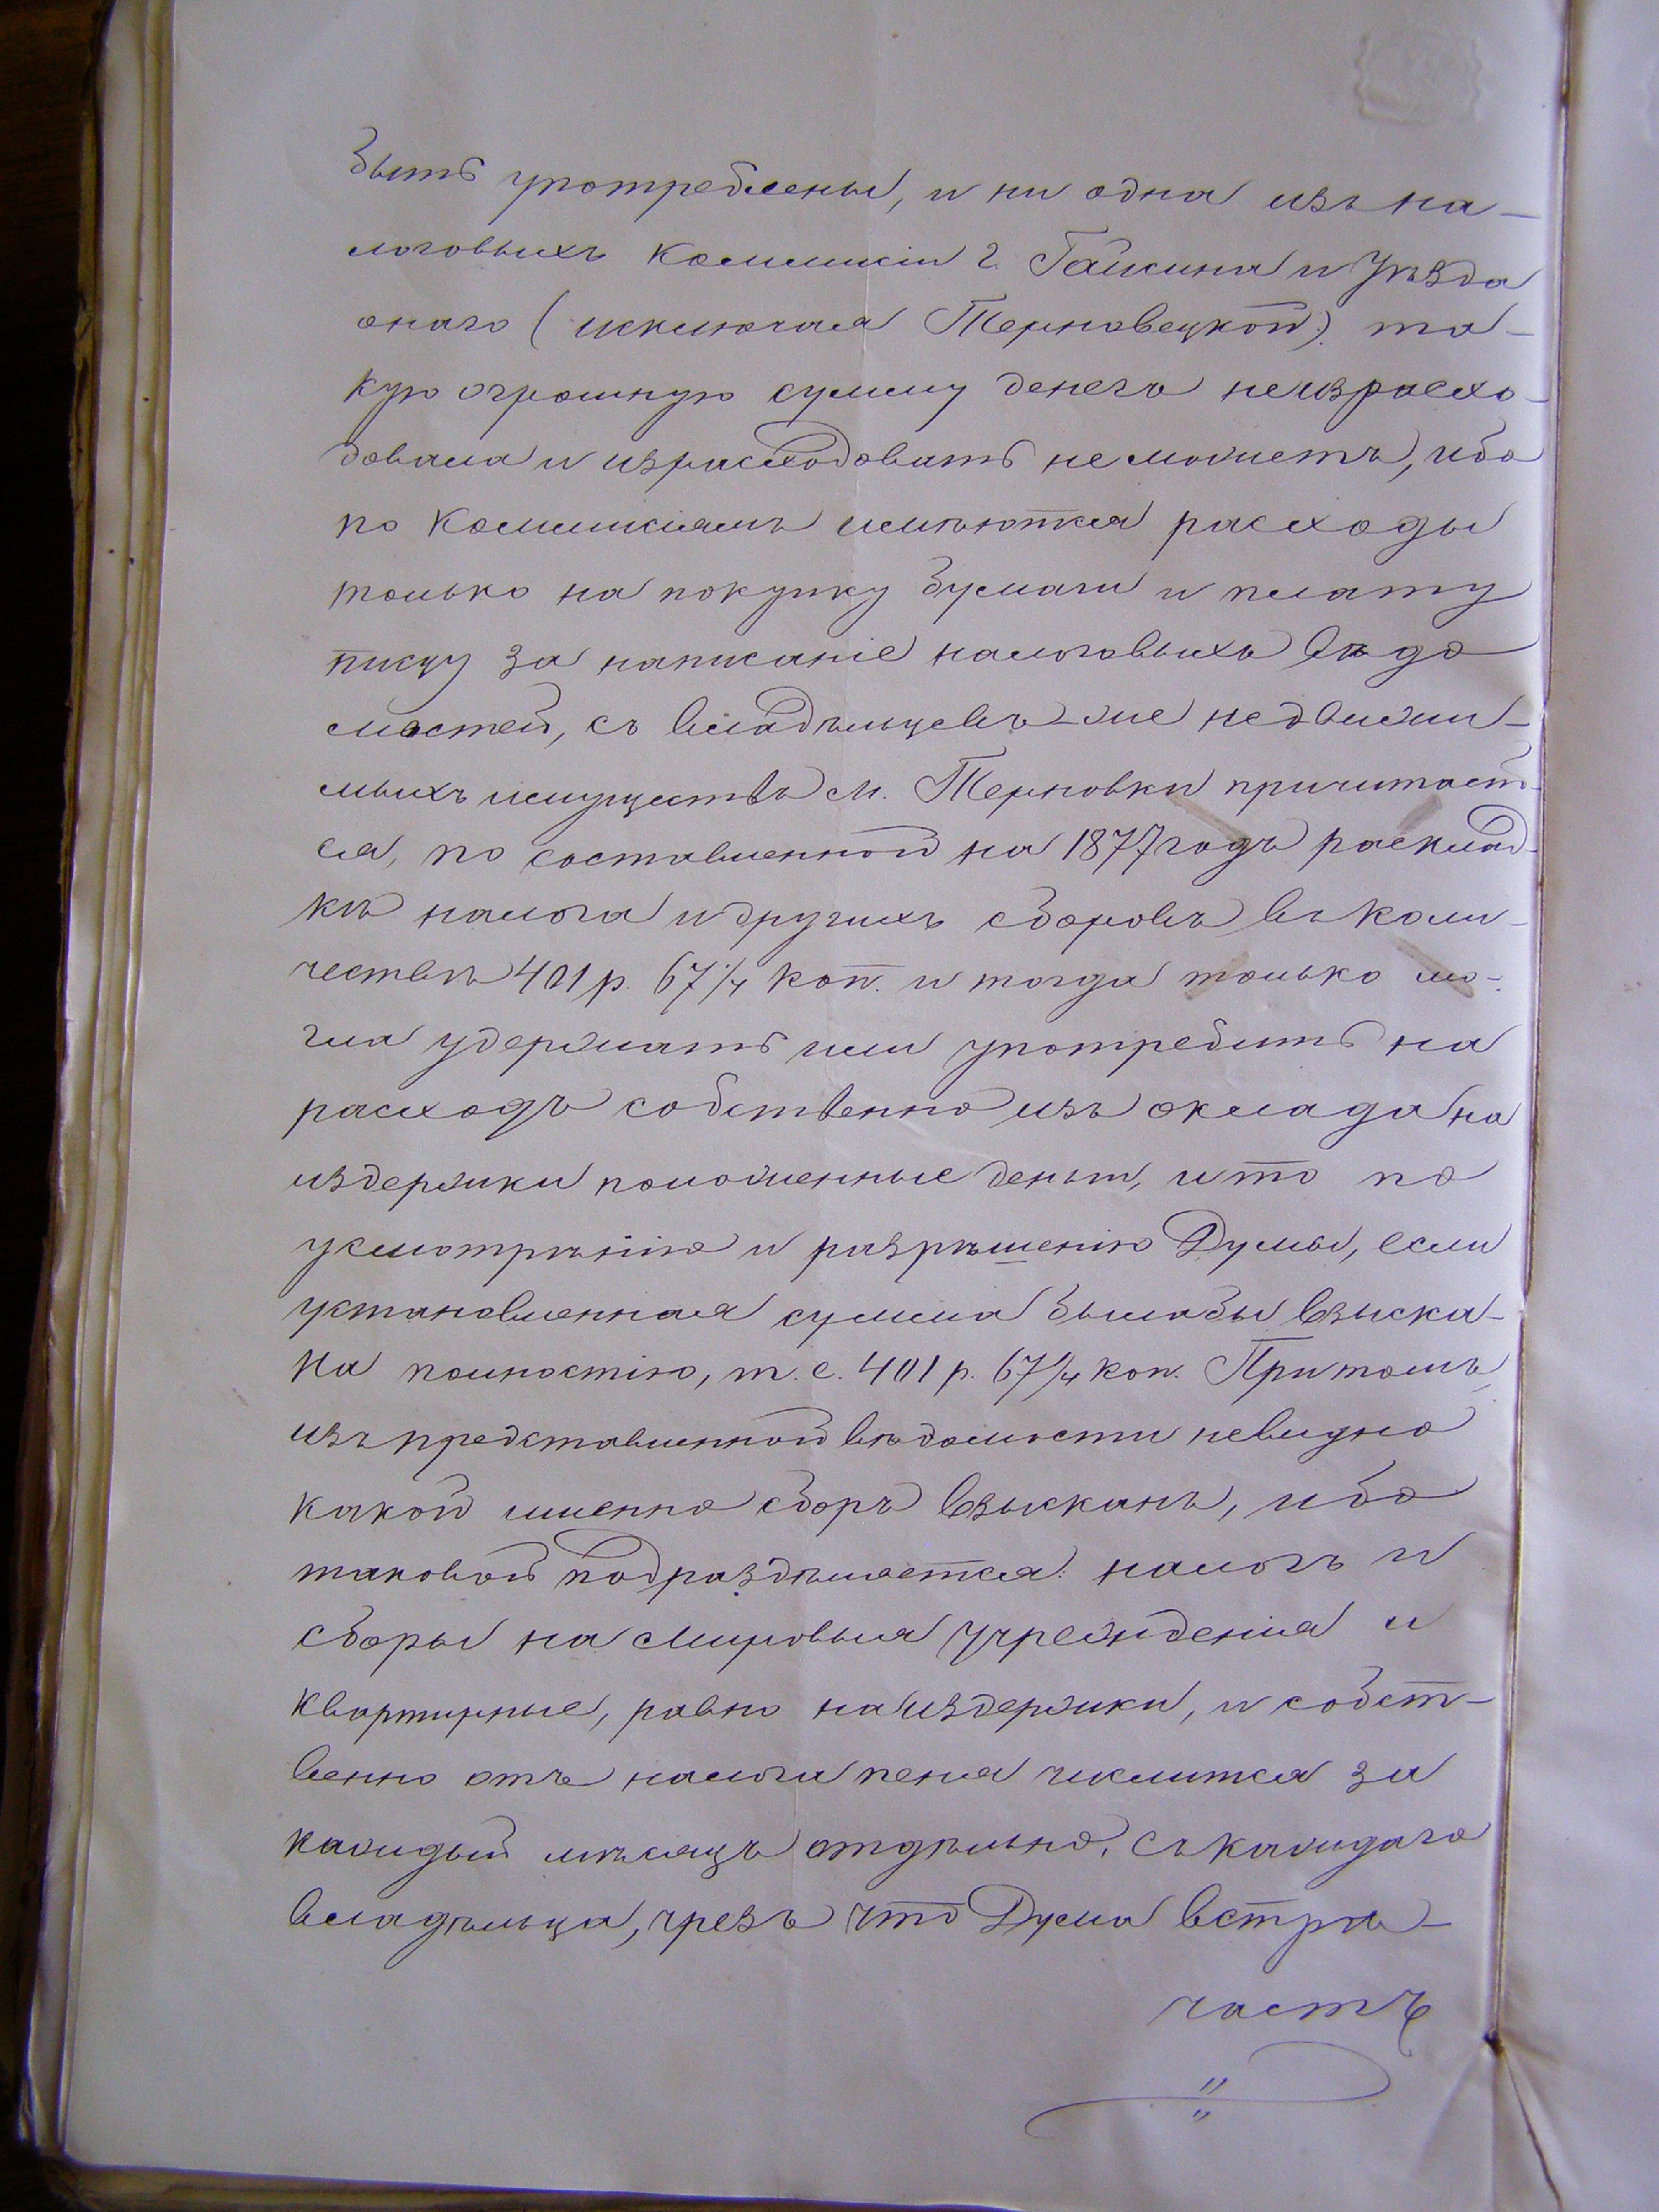 быть употреблены, и ни одна изъ на-
логовыхъ коммисіи г. Гайсина и Уѣзда
онаго (исключая Терновецкой) та-
кую огромную сумму денегъ неизрасхо-
довала и израсходовать не можетъ, ибо
по коммисіямъ имѣются расходы
только на покупку бумаги и плату
писцу за написаніе налоговыхъ вѣдо
мостей, съ владѣльцевъ-же недвижи-
мыхъ имуществъ м. Терновки причитает-
ся, по составленной на 1877 годъ расклад-
кѣ налога и другихъ сборовъ въ коли-
чествѣ 401 р. 67¼ коп. и тогда только мо-
гла удержать или употребить на
расходъ собственно изъ оклада на
издержки положенные деньги, и то по
усмотрѣнію и разрѣшенію Думы, если
установленная сумма былабы взыска-
на полностію, т. е. 401 р. 67¼ коп. Притомъ
изъ представленной вѣдомости невидно
какой именно сборъ взысканъ, ибо
таковой подраздѣляется: налогъ и
сборы на мировыя учрежденія и
квартирные, равно на издержки, и собст-
венно отъ налога пеня числится за
каждый мѣсяцъ отдѣльно, съ каждаго
владѣльца, чрезъ что Дума встрѣ-
чаетъ